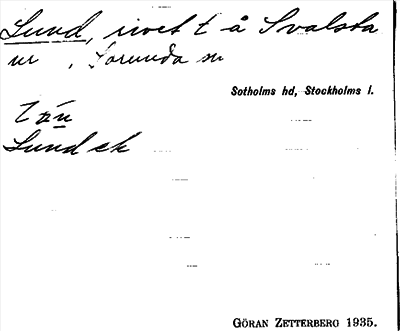 Lund, rivet t å Svalsta
nr , Sorunda sn
Sotholms hd, Stockholms l.
t än
Lund ek
GÖRAN ZETTERBERG 1935.